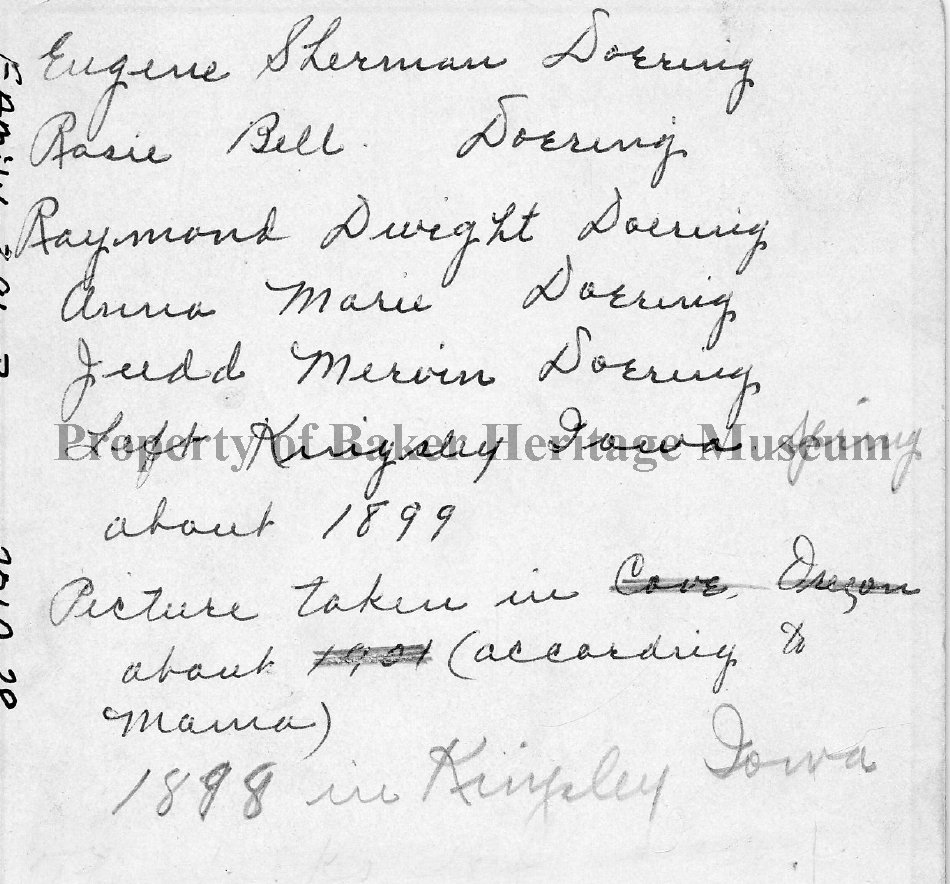 Eugene Sherman Doering
Rosie Bell Doering
Raymond Dwight Doering
Anna Marie Doering
Judd Mervin Doering
Left Kingsley Iowa spring
Property of Baker Heritage Museum
about 1899
Picture taken in Cove, Oregon
about 1901 (according to
Mama)
1898 in Kingsley Iowa